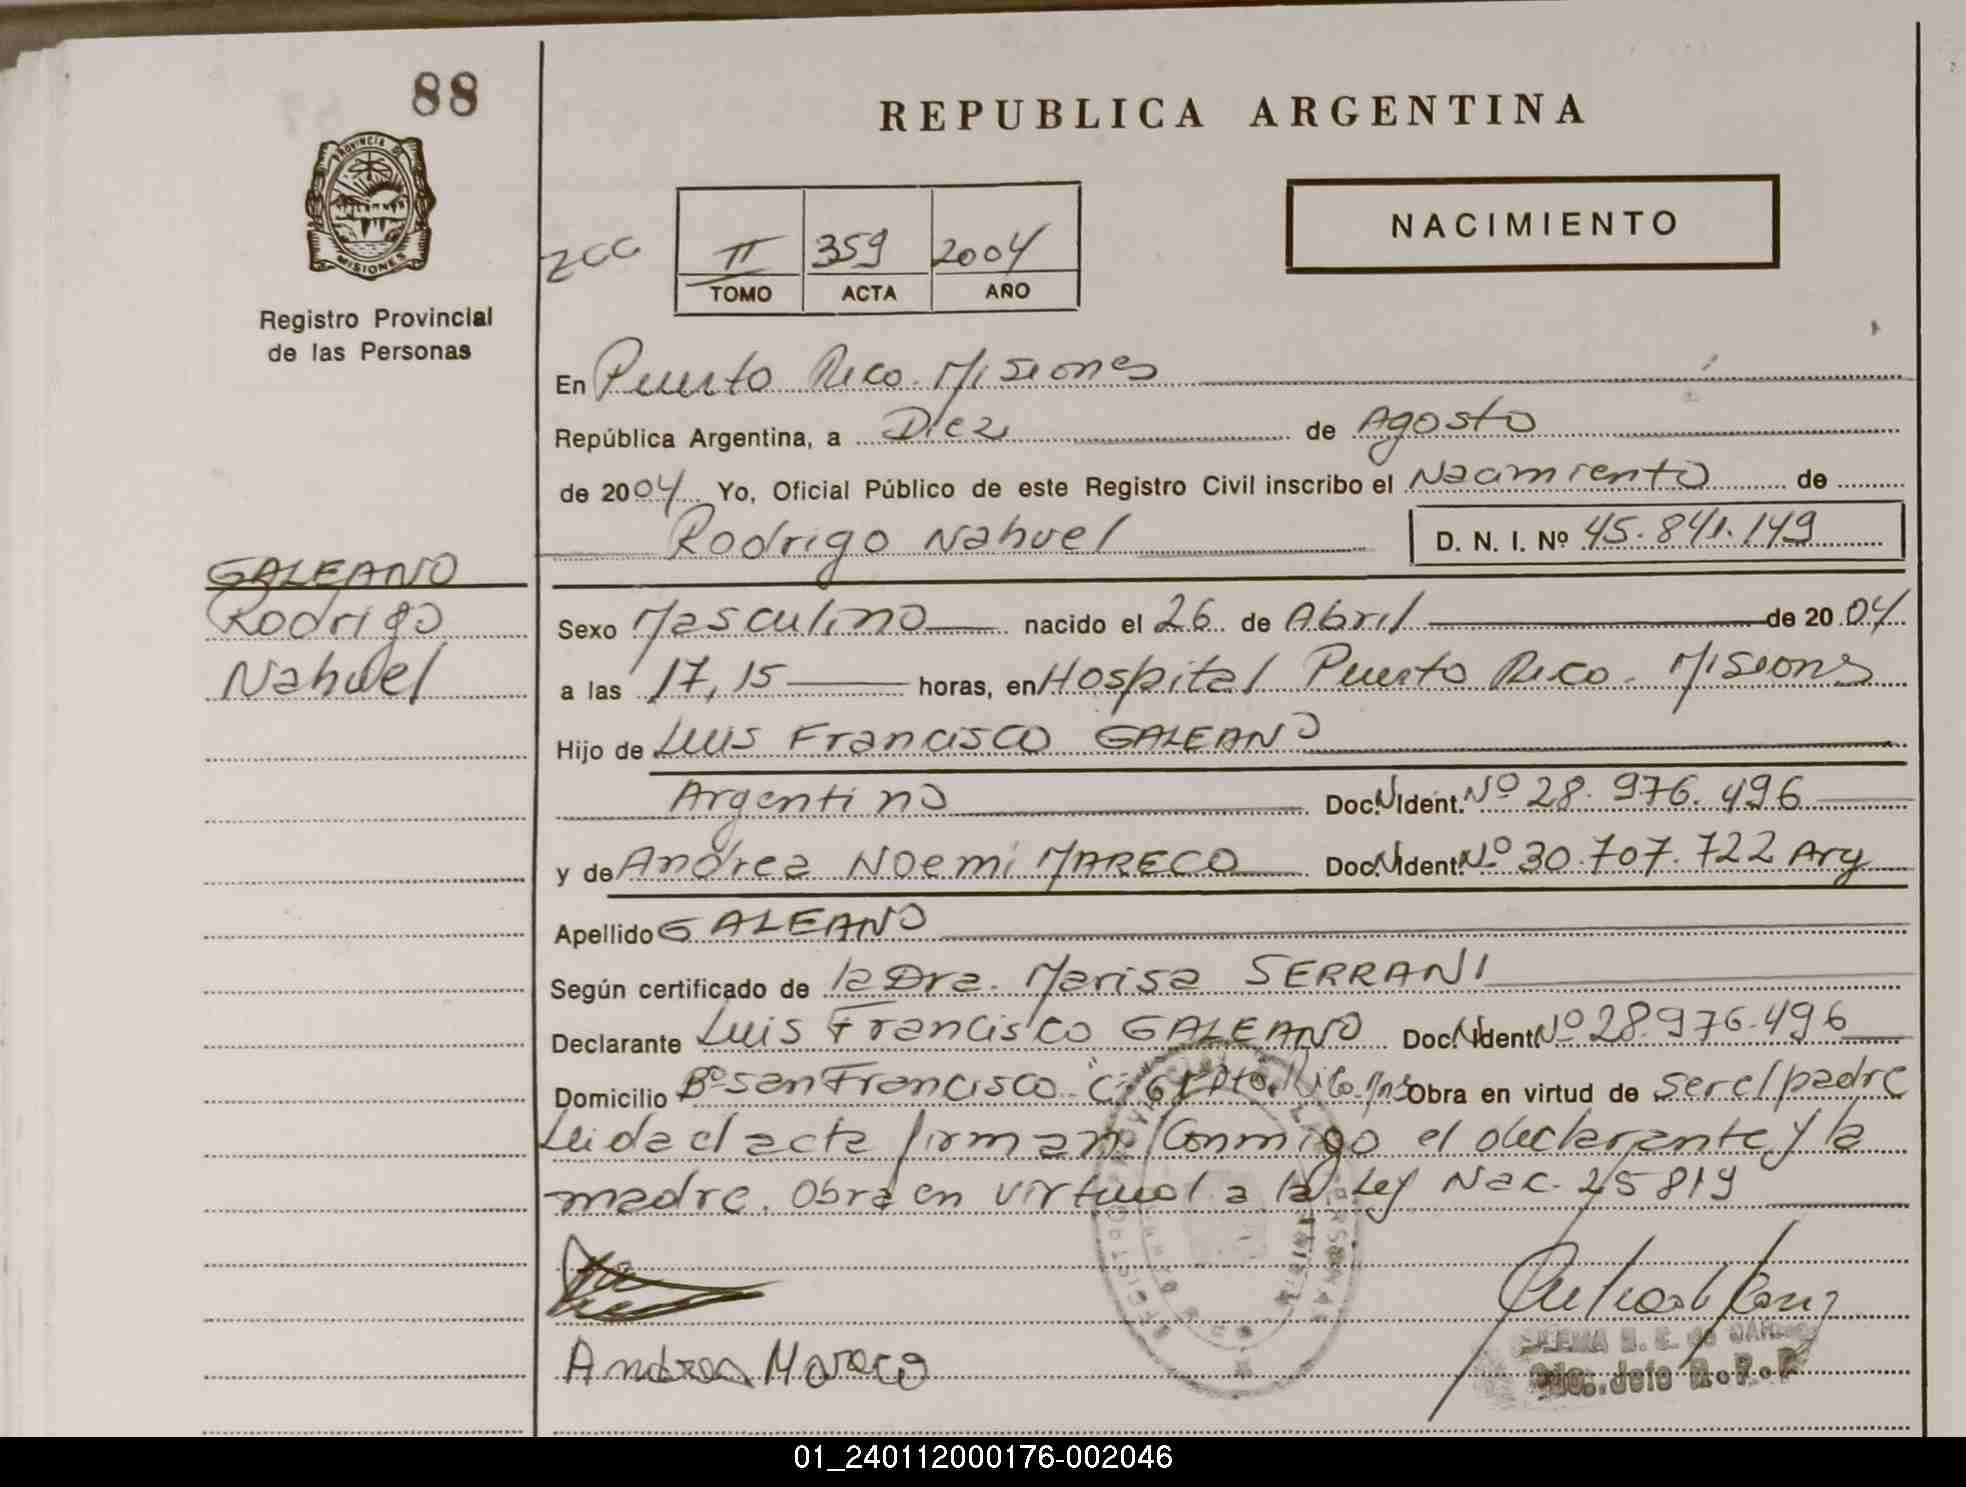 88
PROVINCIA DE
MISIONES
Registro Provincial
de las Personas
REPUBLICA ARGENTINA
NACIMIENTO
II 359 2004
TOMO ACTA AÑO
En Puerto Rico. Misiones
República Argentina, a Diez de Agosto
de 2004 Yo, Oficial Público de este Registro Civil inscribo el Nacimiento de
Rodrigo Nahuel D. N. I. Nº 45.841.149
GALEANO
Rodrigo
Nahuel
Sexo Masculino nacido el 26 de Abril de 2004
a las 17,15 horas, en Hospital Puerto Rico. Misiones
Hijo de Luis Francisco GALEANO
Argentino Doc. N. Ident. Nº 28.976.496
y de Andrea Noemi MARECO Doc. N. Ident. Nº 30.707.722 Arg
Apellido GALEANO
Según certificado de la Dra. Marisa SERRANI
Declarante Luis Francisco GALEANO Doc. N. Ident. Nº 28.976.496
Domicilio Bº San Francisco Pto. Rico. Mns Obra en virtud de ser el padre
Leida el acta firman conmigo el declarante y la
madre. Obra en virtud a la Ley Nac. 25819
Andrea Mareco
Jefe R.P.P
01_240112000176-002046